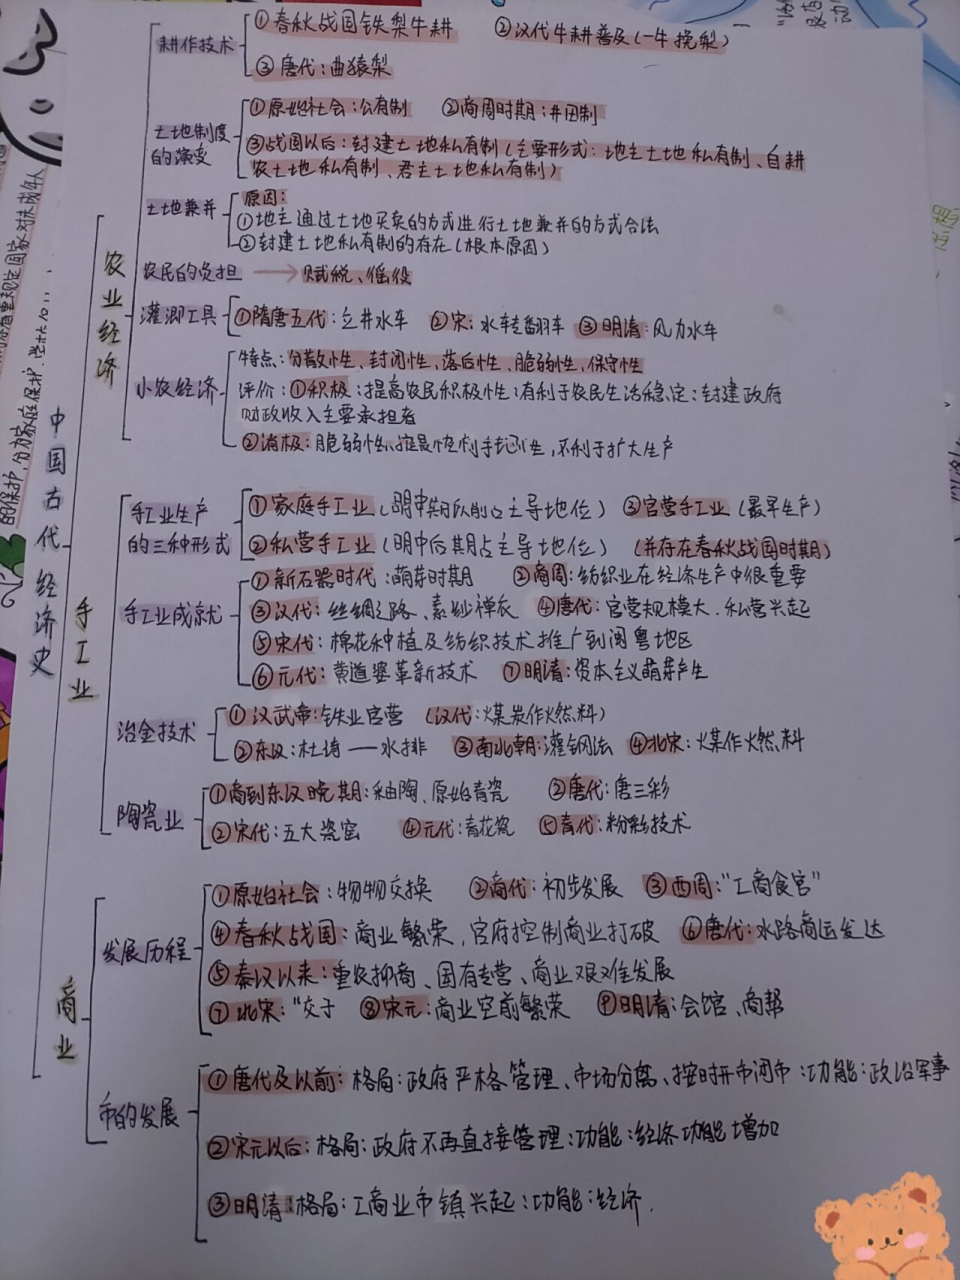 中国古代经济史
农业经济
耕作技术
①春秋战国铁犁牛耕 ②汉代牛耕普及(一牛挽犁)
③唐代:曲猿犁
土地制度的演变
①原始社会:公有制 ②商周时期:井田制
③战国以后:封建土地私有制(主要形式:地主土地私有制、自耕
农土地私有制、君主土地私有制)
土地兼并
原因:
①地主通过土地买卖的方式进行土地兼并的方式合法
②封建土地私有制的存在(根本原因)
农民的负担 → 赋税、徭役
灌溉工具
①隋唐五代:立井水车 ②宋:水转翻车 ③明清:风力水车
小农经济
特点:分散性、封闭性、落后性、脆弱性、保守性
评价:①积极:提高农民积极性;有利于农民生活稳定;封建政府
财政收入主要承担者
②消极:脆弱性、不利于扩大生产
手工业
手工业生产
的三种形式
①家庭手工业(明中期以前占主导地位) ③官营手工业(最早生产)
②私营手工业(明中后期占主导地位) (并存在春秋战国时期)
手工业成就
①新石器时代:萌芽时期 ②商周:纺织业在经济生产中很重要
③汉代:丝绸之路、素纱禅衣 ④唐代:官营规模大.私营兴起
⑤宋代:棉花种植及纺织技术推广到闽粤地区
⑥元代:黄道婆革新技术 ⑦明清:资本主义萌芽产生
冶金技术
①汉武帝:铁业官营 (汉代:煤炭作燃料)
②东汉:杜诗——水排 ③南北朝:灌钢法 ④北宋:煤作燃料
陶瓷业
①商到东汉晚期:釉陶、原始青瓷 ②唐代:唐三彩
②宋代:五大瓷窑 ④元代:青花瓷 ⑤青代:粉彩技术
商业
发展历程
①原始社会:物物交换 ②商代:初步发展 ③西周:"工商食官"
④春秋战国:商业繁荣,官府控制商业打破 ⑥唐代:水路商运发达
⑤秦汉以来:重农抑商、国有专营、商业艰难发展
⑦北宋:"交子 ⑧宋元:商业空前繁荣 ⑨明清:会馆、商帮
市的发展
①唐代及以前:格局:政府严格管理、市场分离、按时开市闭市;功能:政治军事
②宋元以后:格局:政府不再直接管理;功能:经济功能增加
③明清:格局:工商业市镇兴起;功能:经济.